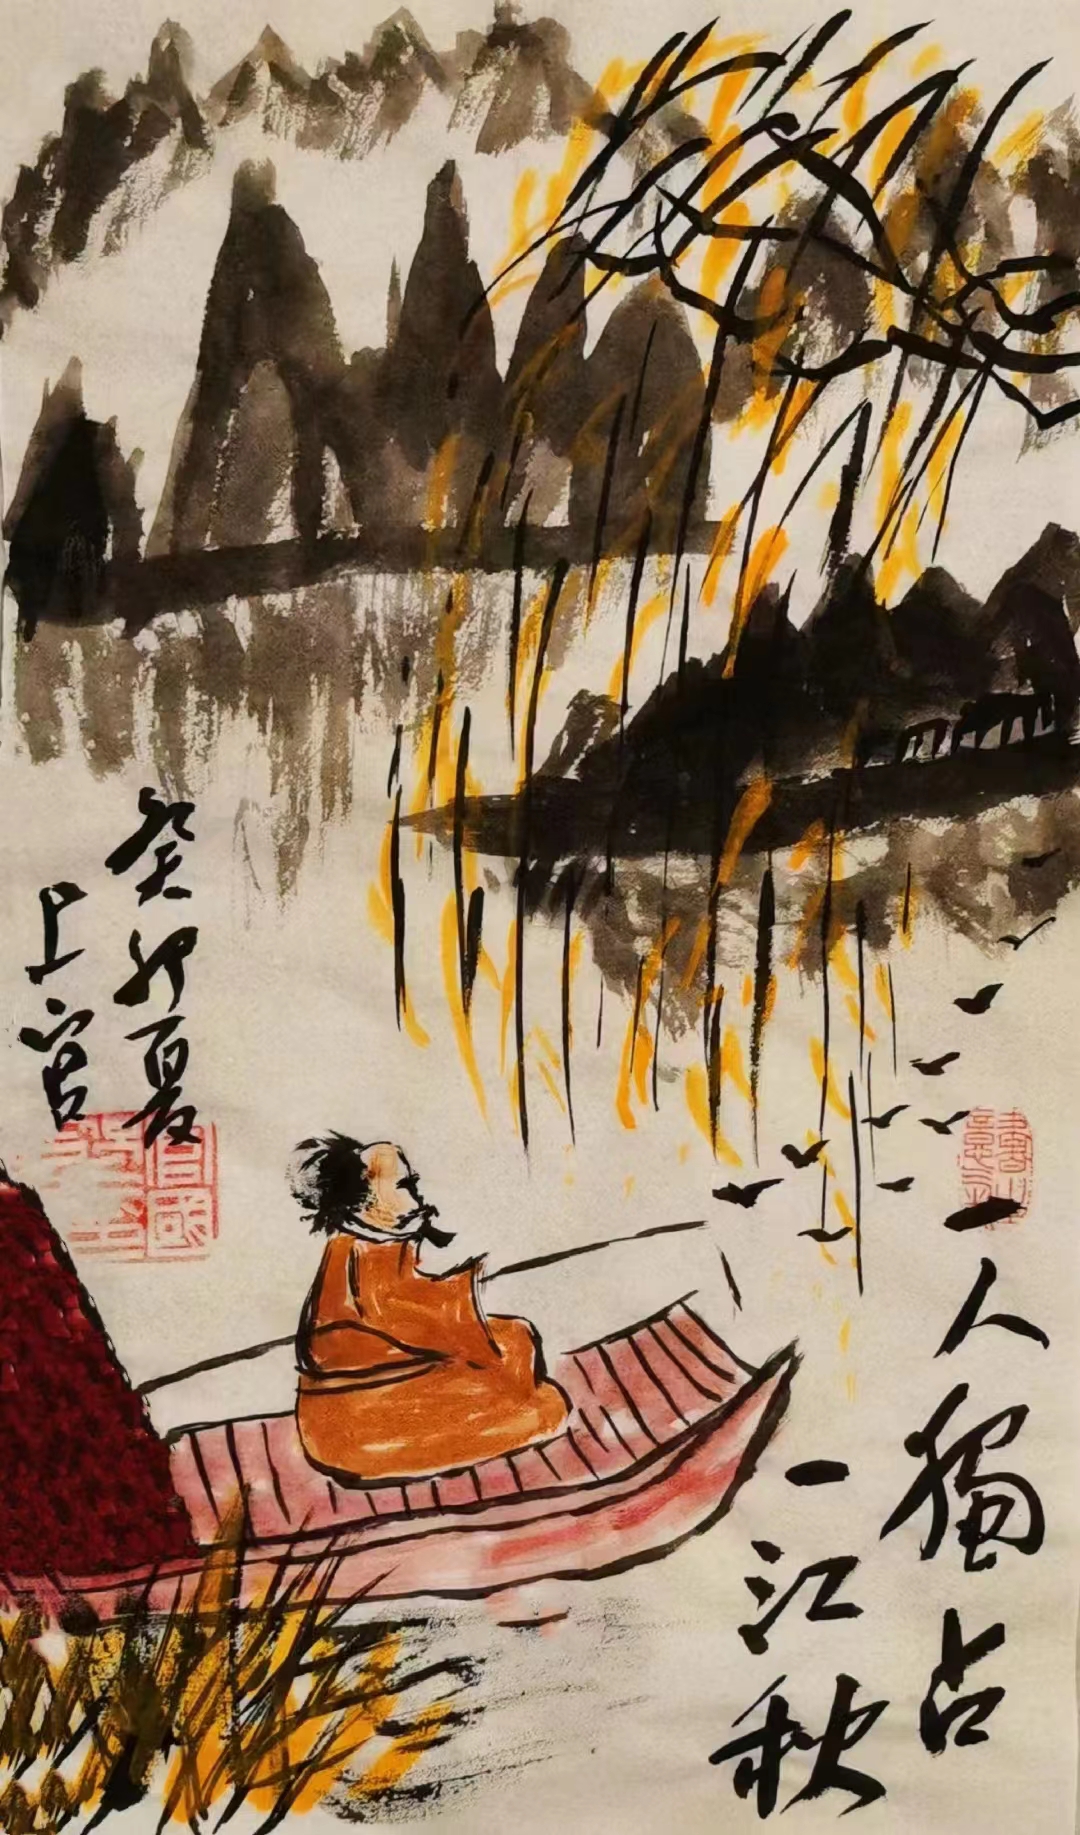 一人獨占
一江秋
癸卯夏
上官